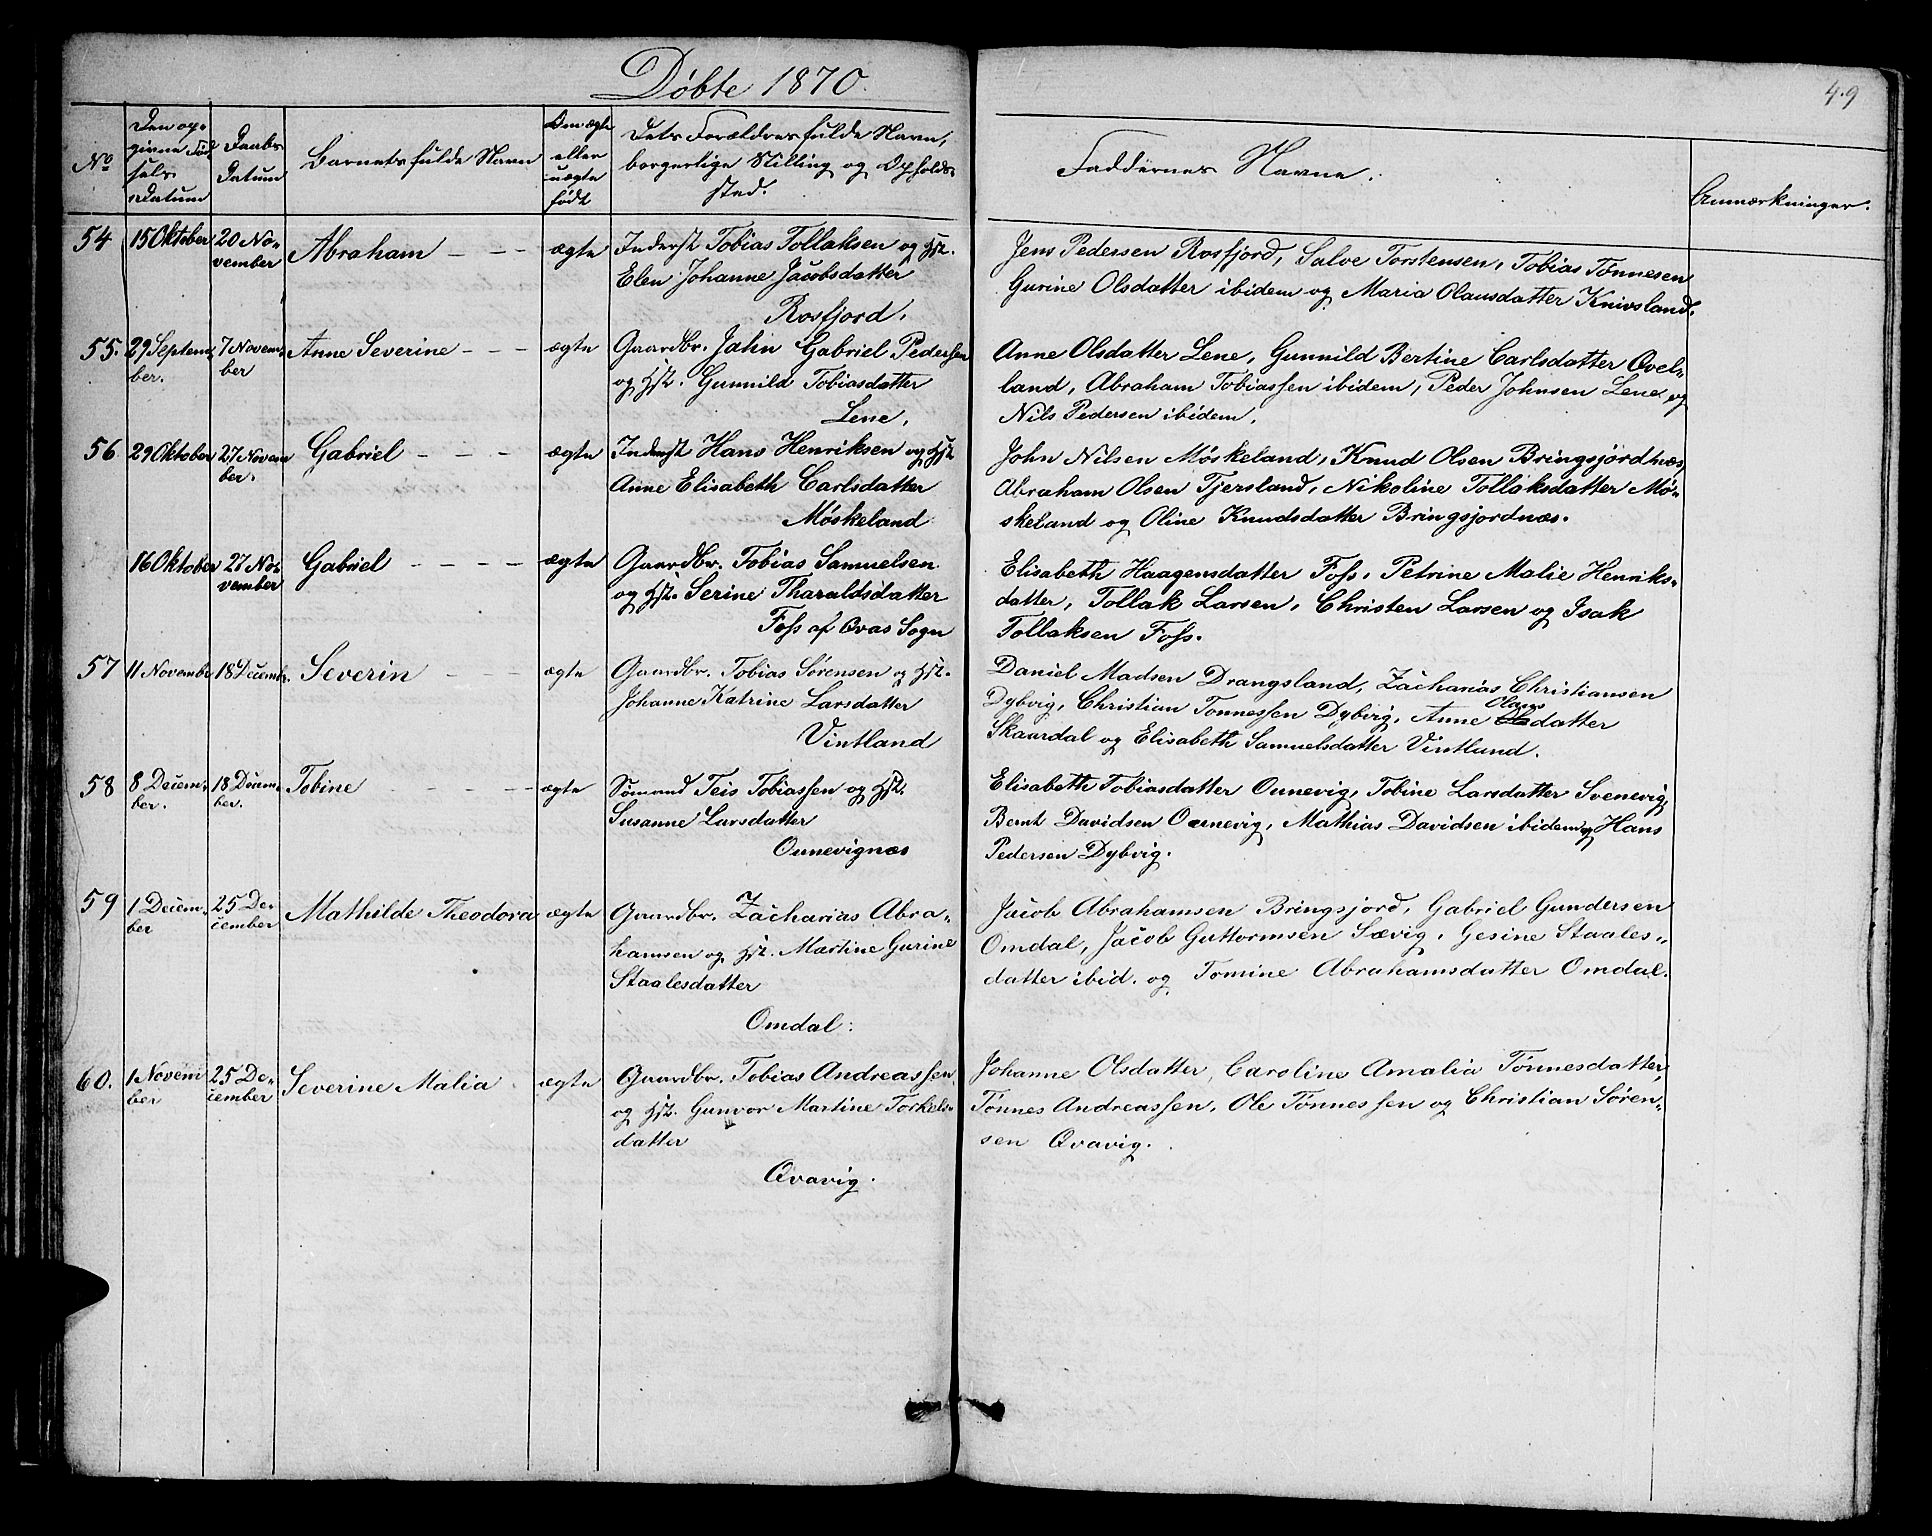 Døbte 1870.
49
No
Den op-
givne Fød
sels
Datum
Daabs
Datum
Barnets fulde Navn
Om ægte
eller
uægte
født
Dets Forældres fulde Navn,
borgerlige Stilling og Opholds-
sted.
Faddernes Navne.
Anmærkninger.
54 15 Oktober 20 No-
vember Abraham - - - ægte Inderst Tobias Tollaksen og Hst.
Elen Johanne Jacobsdatter
Rosfjord.
Jens Pedersen Rosfjord, Salve Torstensen, Tobias Tønnesen
Gurine Olsdatter ibidem og Maria Olausdatter Knivsland.
55. 29 Septem-
ber. 7 Novem-
ber Anne Severine - - - ægte Gaardbr. Jahn Gabriel Pedersen
og Hst. Gunnild Tobiasdatter
Lene.
Anne Olsdatter Lene, Gunnild Bertine Carlsdatter Qvel-
land, Abraham Tobiassen ibidem, Peder Johnsen Lene og
Nils Pedersen ibidem.
56 29 Oktober 27 Novem
ber. Gabriel - - - ægte Inderst Hans Henriksen og Hst
Anne Elisabeth Carlsdatter
Møskeland
John Nilsen Møskeland, Knud Olsen Bringsjordnæs,
Abraham Olsen Tjersland, Nikoline Tollaksdatter Mø-
skeland og Oline Knudsdatter Bringsjordnæs.
16 Oktober 27 No-
vember Gabriel - - - - ægte Gaardbr. Tobias Samuelsen
og Hst. Serine Tharaldsdatter
Foss af Qvas Sogn
Elisabeth Haagensdatter Foss, Petrine Malie Henriks-
datter, Tollak Larsen, Christen Larsen og Isak
Tollaksen Foss.
57 11 November 18 Decemb. Severin - - - ægte Gaardbr. Tobias Sørensen og Hst.
Johanne Katrine Larsdatter
Vintland
Daniel Madsen Drangsland, Zacharias Christiansen
Dybvig, Christian Tonnessen Dybvig, Anne Olausdatter
Skaardal og Elisabeth Samuelsdatter Vintland.
58 8 Decem-
ber. 18 Decem-
ber. Tobine - - - - ægte Sømand Teis Tobiassen og Hst.
Susanne Larsdatter
Ounevignæs
Elisabeth Tobiasdatter Ounevig, Tobine Larsdatter Svenevig,
Bernt Davidsen Ounevig, Mathias Davidsen ibidem og Hans
Pedersen Dybvig.
59 1 Decem-
ber 25 De-
cember Mathilde Theodora ægte Gaardbr. Zacharias Abra-
hamsen og Hst. Martine Gurine
Staalesdatter
Omdal:
Jacob Abrahamsen Bringsjord, Gabriel Gundersen
Omdal, Jacob Guttormsen Sævig, Gesine Staales-
datter ibid. og Tomine Abrahamsdatter Omdal.
60. 1 Novem
ber 25 De-
cember Severine Malia - ægte Gaardbr. Tobias Andreassen
og Hst. Gunvor Martine Torkels-
datter
Qvavig.
Johanne Olsdatter, Caroline Amalia Tønnesdatter,
Tønnes Andreassen, Ole Tønnessen og Christian Søren-
sen Qvavig.